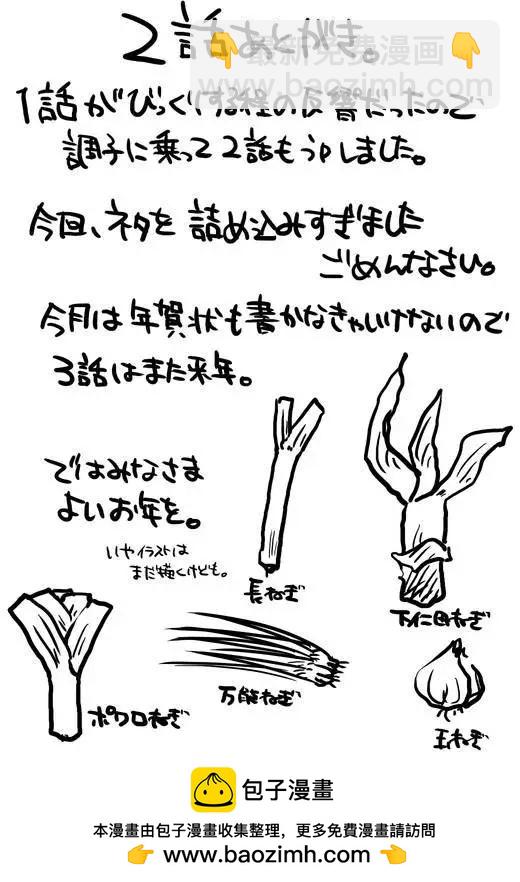 2話あとがき。
最新免費漫画
www.baozimh.com
1話がびっくりする程の反響だったので
調子に乗って2話もうpしました。
今回、ネタを詰め込みすぎました
ごめんなさい。
今月は年賀状も書かなきゃいけないので
3話はまた来年。
ではみなさま
よいお年を。
いやイラストは
まだ描くけども。
長ねぎ
下仁田ねぎ
ポワロねぎ
万能ねぎ
玉ねぎ
包子漫畫
本漫畫由包子漫畫收集整理，更多免費漫畫請訪問
👉 www.baozimh.com 👈